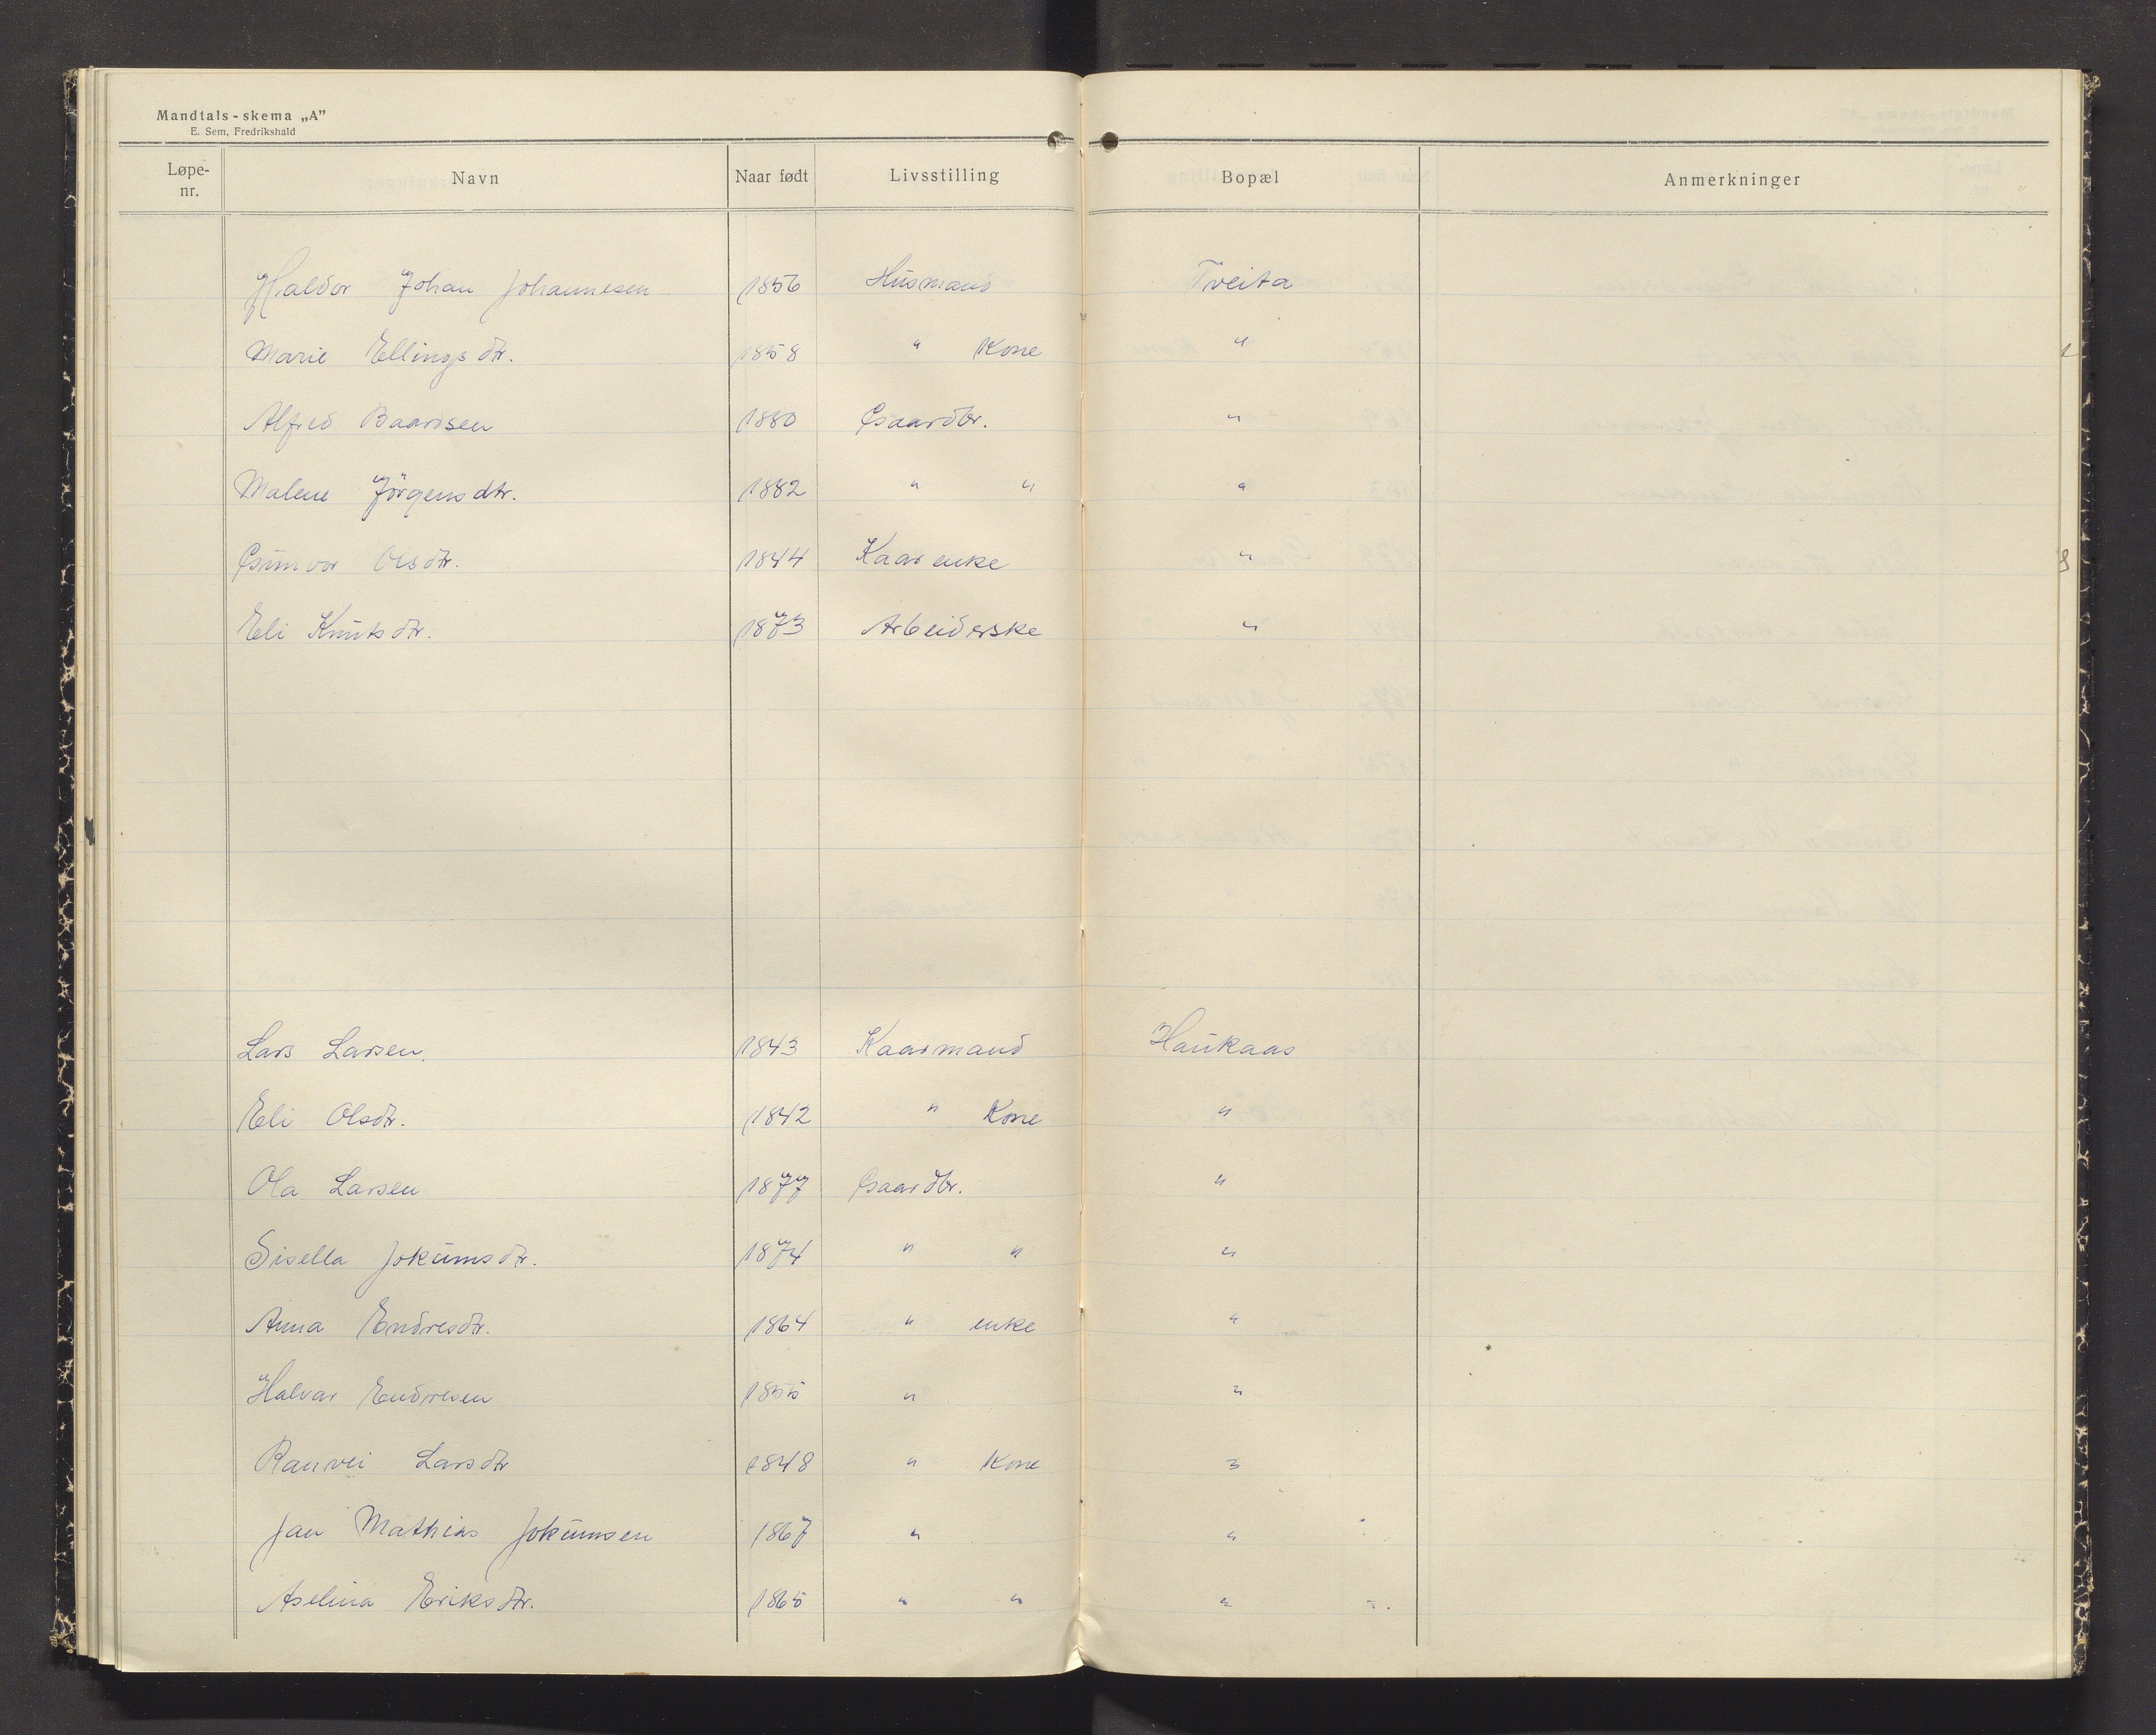 Mandtals-skema „A”
E. Sem, Fredrikshald
Løpe-nr. Navn Naar født Livsstilling Bopæl Anmerkninger
Haldor Johan Johannesen 1856 Husmand Tveita
Marie Ellingsdtr. 1858 " Kone "
Alfred Baardsen 1880 Gaardbr. "
Malene Jörgensdtr. 1882 " " "
Gunvor Olsdtr. 1844 Kaarenke "
Eli Knutsdtr. 1873 Arbeiderske "
Lars Larsen. 1843 Kaarmand Haukaas
Eli Olsdtr. 1842 " Kone "
Ola Larsen 1877 Gaardbr. "
Sisella Jokumsdtr. 1874 " " "
Anna Endresdtr. 1864 " enke "
Halvar Endresen 1855 " "
Ranvei Larsdtr 1848 " Kone "
Jan Mathias Jokumsen 1867 " "
Aselina Eriksdtr. 1865 " " "